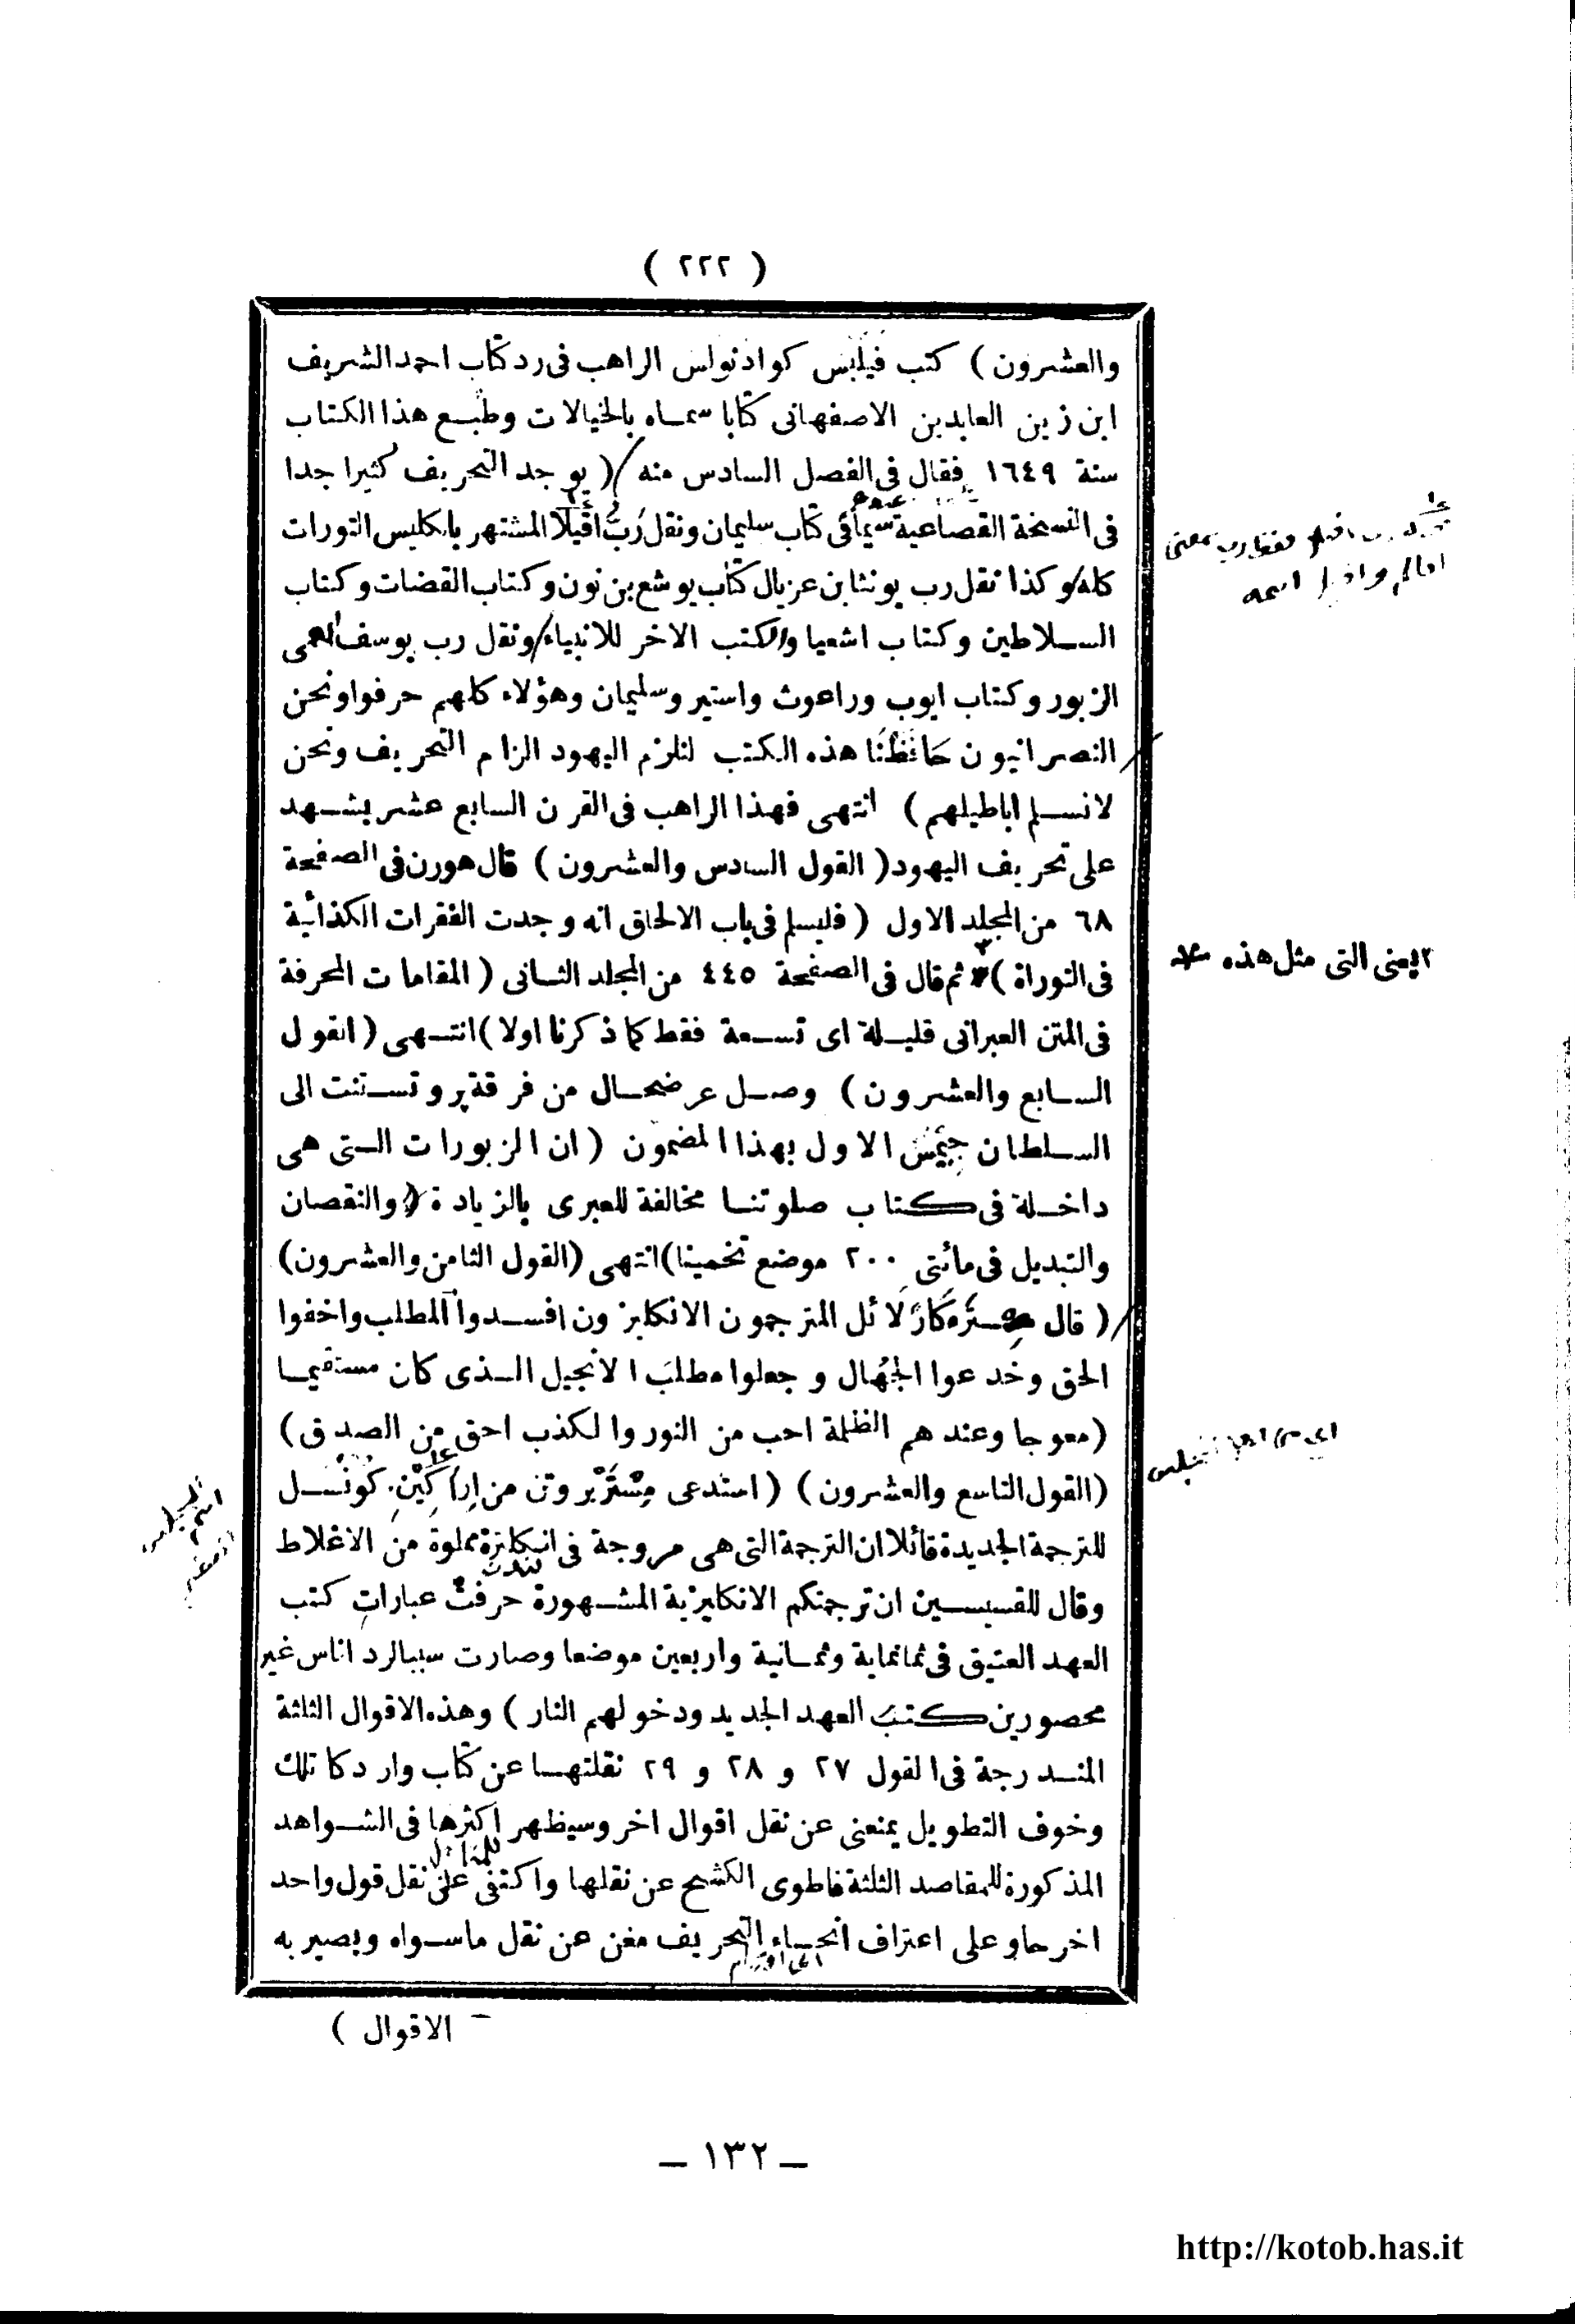 ( ٢٢٢ )
والعشرون ) كتب فيلبس كواذنولس الراهب فى رد كتاب احمد الشريف
ابن زين العابدين الاصفهانى كتابا سماه بالخيالات وطبع هذا الكتاب
سنة ١٦٤٩ فقال فى الفصل السادس منه ( يوجد التحريف كثيرا جدا
فى النسخة القصاعية سيما فى كتاب سليمان ونقل رَبُّ اقيلا المشتهر بانكليس التورات
كله وكذا نقل رب يونثا بن عزيال كتاب يوشع بن نون وكتاب القضات وكتاب
السلاطين وكتاب اشعيا والكتب الاخر للانبياء ونقل رب يوسف اعمى
الزبور وكتاب ايوب وراعوث واستير وسليمان وهؤلاء كلهم حرفوا ونحن
النصرانيون حَافَظْنَا هذه الكتب لنلزم اليهود الزام التحريف ونحن
لانسلم اباطيلهم ) انتهى فهذا الراهب فى القرن السابع عشر يشهد
على تحريف اليهود ( القول السادس والعشرون ) قال هورن فى الصفحة
٦٨ من المجلد الاول ( فليسلم فى باب الالحاق انه وجدت الفقرات الكذائية
فى التوراة ) ٣ ثم قال فى الصفحة ٤٤٥ من المجلد الثانى ( المقامات المحرفة
فى المتن العبرانى قليلة اى تسعة فقط كما ذكرنا اولا ) انتهى ( القول
السابع والعشرون ) وصل عرضحال من فرقة پروتستنت الى
السلطان جيمس الاول بهذا المضمون ( ان الزبورات التى هى
داخلة فى كتاب صلوتنا مخالفة للعبرى بالزيادة والنقصان
والتبديل فى مائتى ٢٠٠ موضع تخمينا ) انتهى ( القول الثامن والعشرون )
( قال مِستَر كَارْلَائل المترجمون الانكليزون افسدوا المطلب واخفوا
الحق وخدعوا الجُهال وجعلوا مطلبَ الانجيل الذى كان مستقيما
( معوجا وعندهم الظلمة احب من النور والكذب احق من الصدق )
( القول التاسع والعشرون ) ( استدعى مِسْتَرْ بروتن من اراكين كونسل
للترجمة الجديدة قائلا ان الترجمة التى هى مروجة فى انكلتره مملوة من الاغلاط
وقال للقسيسين ان ترجمتكم الانكليزية المشهورة حرفت عباراتِ كتب
العهد العتيق فى ثمانماية وثمانية واربعين موضعا وصارت سببا لرد اناس غير
محصورين كتبَ العهد الجديد ودخولهم النار ) وهذه الاقوال الثلثة
المندرجة فى القول ٢٧ و ٢٨ و ٢٩ نقلتها عن كتاب وارد كاتلك
وخوف التطويل يمنعنى عن نقل اقوال اخر وسيظهر اكثرها فى الشواهد
المذكورة للمقاصد الثلثة فاطوى الكشح عن نقلها واكتفى على نقل قول واحد
اخر حاو على اعتراف انحاء التحريف مغن عن نقل ماسواه ويصير به
الاقوال )
٣ يعنى التى مثل هذه
ـ ١٣٢ ـ
http://kotob.has.it